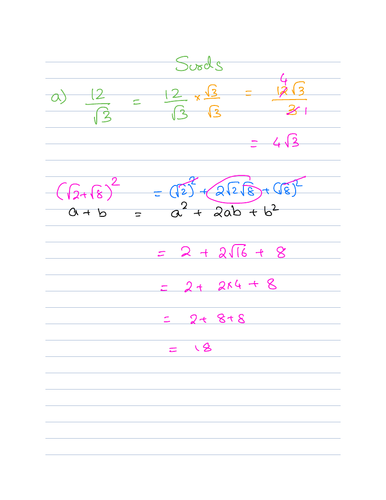 Surds
a) 12/√3 = 12/√3 × √3/√3 = 12√3/3 4 1
= 4√3
(√2+√8)² = (√2)² + 2√2√8 + (√8)²
a + b = a² + 2ab + b²
= 2 + 2√16 + 8
= 2 + 2×4 + 8
= 2 + 8 + 8
= 18